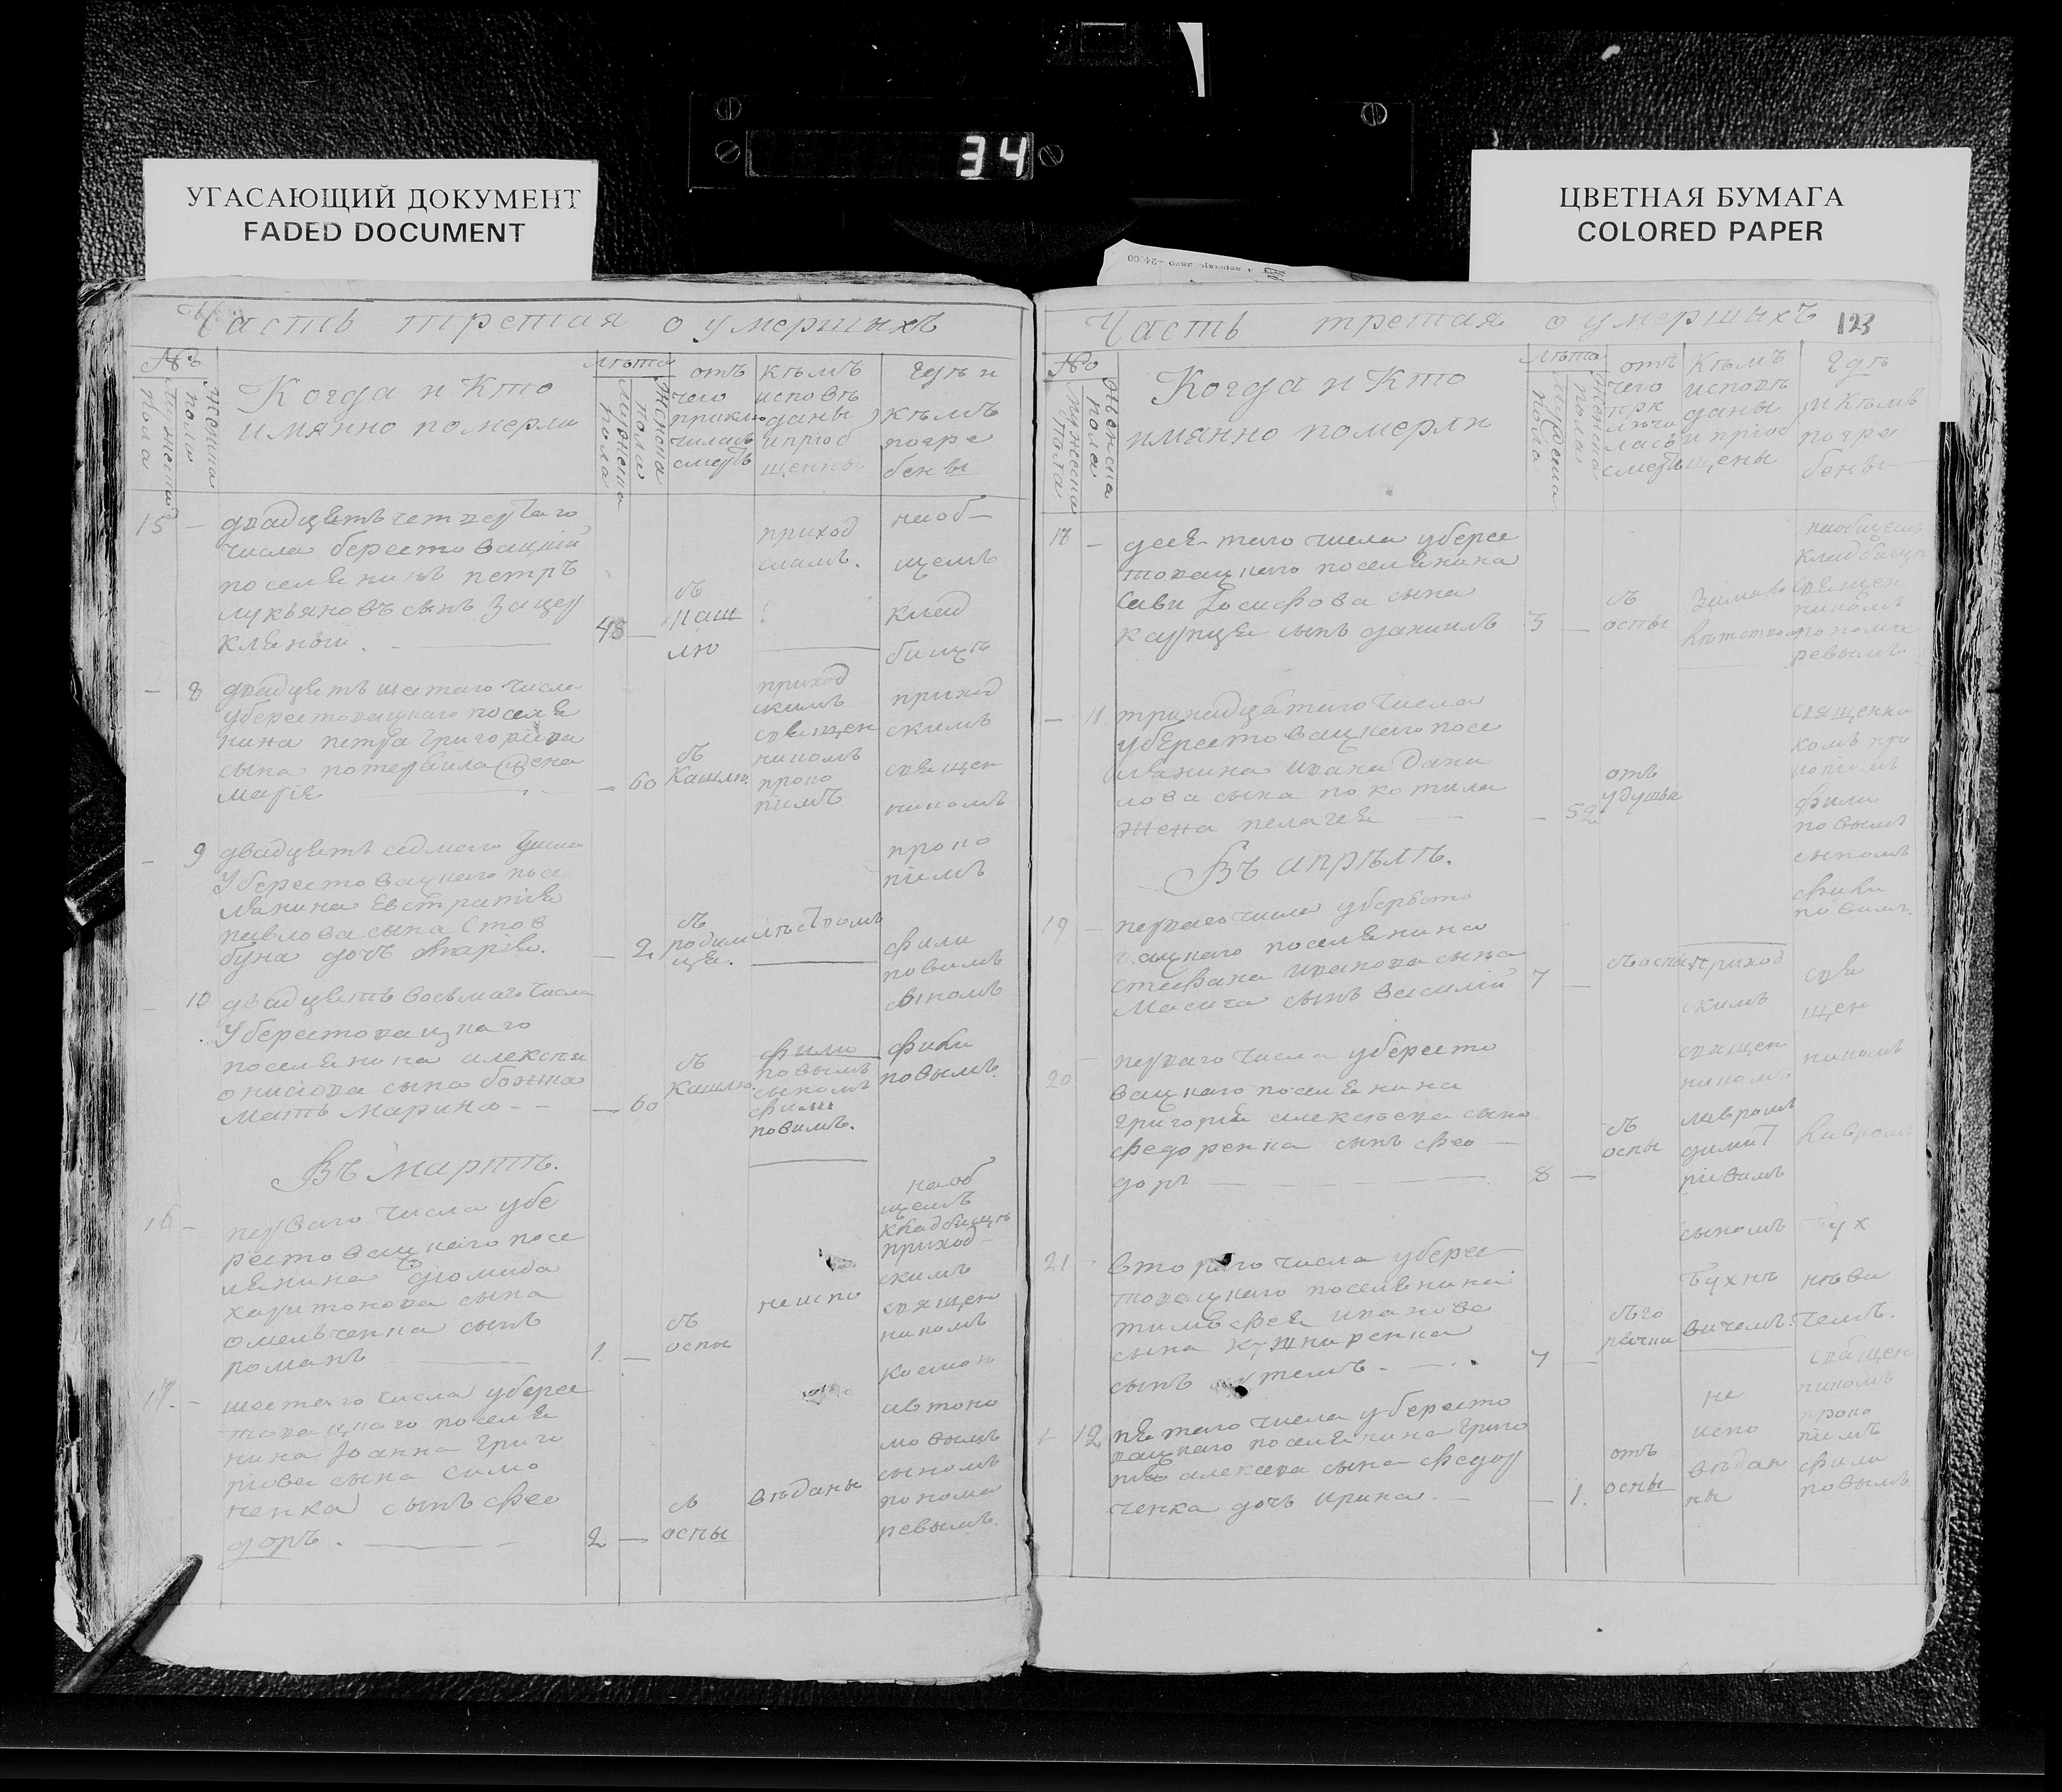 34
УГАСАЮЩИЙ ДОКУМЕНТ
FADED DOCUMENT
ЦВЕТНАЯ БУМАГА
COLORED PAPER
Часть третая о умершыхъ
№
Мужеска пола
Женска пола
Когда и Кто
имянно померли
Лѣта
Мужеска пола
Женска пола
отъ
чего
приклю
чилась
смерть
кѣмъ
исповѣ
даны
и пріоб
щенны
Гдѣ и
кѣмъ
погре
бены
15 —
двадцеть четвертаго
числа берестовацкій
поселянинъ петръ
лукьяновъ сынъ
48 —
съ
кашлю
приход
на об
щемъ
клад
бищѣ
— 8
двадцеть шестаго числа
уберестовацкаго поселя
нина петра григоріева
сына потерайла жена
марія
— 60
съ
кашлю.
приход
скимъ
священ
никомъ
проко
піемъ
приход
скимъ
священ
никомъ
проко
піемъ
— 9
двадцеть седмаго числа
Уберестовацкаго посе
лянина Евстратія
павлова сына Стов
буна дочь
— 2
съ
родим
ца.
фили
повымъ
сыномъ
фили
повымъ.
— 10
двадцеть восьмаго числа
Уберестовацкаго
поселянина алексѣя
онисiова сына божка
мать марина — —
— 60
съ
кашлю.
фили
повымъ
сыномъ
фили
повымъ.
Въ мартѣ.
16 —
перваго числа убе
рестовацкаго посе
лянина діомида
харитонова сына
омельченка сынъ
романъ
1. —
съ
оспы
не испо
на об
щемъ
кладбищѣ
приход
скимъ
священ
никомъ
космою
автоно
мовымъ
сыномъ
понома
ревымъ.
17. —
шестаго числа уберес
товацкаго поселя
нина Іоанна григо
ріева сына симо
ненка сынъ фео
доръ. —
2 —
съ
оспы
вѣданы
Часть третая о умершыхъ
123
№
Мужеска пола
Женска пола
Когда и Кто
имянно померли
Лѣта
Мужеска пола
Женска пола
отъ
чего
прк
лючи
лась
смерть
Кѣмъ
исповѣ
даны
и пріоб
щены
Гдѣ
и Кѣмъ
погре
бены
18 —
десятаго числа уберес
товацкаго поселянина
Сави Іосифова сына
карпця сынъ даниилъ
3 —
съ
оспы
на общемъ
кладбищѣ
священ
никомъ
понома
ревымъ.
— 11
тринадцатаго числа
уберестовацкаго посе
лянина ивана Дани
лова сына покотила
жена пелагея
— 52
отъ
удушья
священни
комъ про
копіемъ
фили
повымъ
сыномъ
фили
повымъ.
Въ апрѣлѣ.
19 —
перваго числа убересто
вацкаго поселянина
стефана иванова сына
Масича сынъ василий
7 —
съ оспы
приход
скимъ
священ
никомъ.
20
перваго числа убересто
вацкаго поселянина
григорія алексѣева сына
федоренка сынъ фео
доръ
8 —
съ
оспы
лавромъ
димит
ріевымъ
сыномъ
Бухнѣ
вичемъ.
свя
щен
никомъ
лавромъ
Бух
нѣви
чемъ.
21 —
втораго числа уберес
товацкаго поселянина
тимофея иванова
сына кушниренка
сынъ
7 —
съ го
рячки
12
пятаго числа убересто
вацкаго поселянина григо
рія алексѣева сына федор
ченка дочь ирина —
— 1.
отъ
оспы
не
испо
вѣдан
ны
священ
никомъ
проко
піемъ
фили
повымъ.